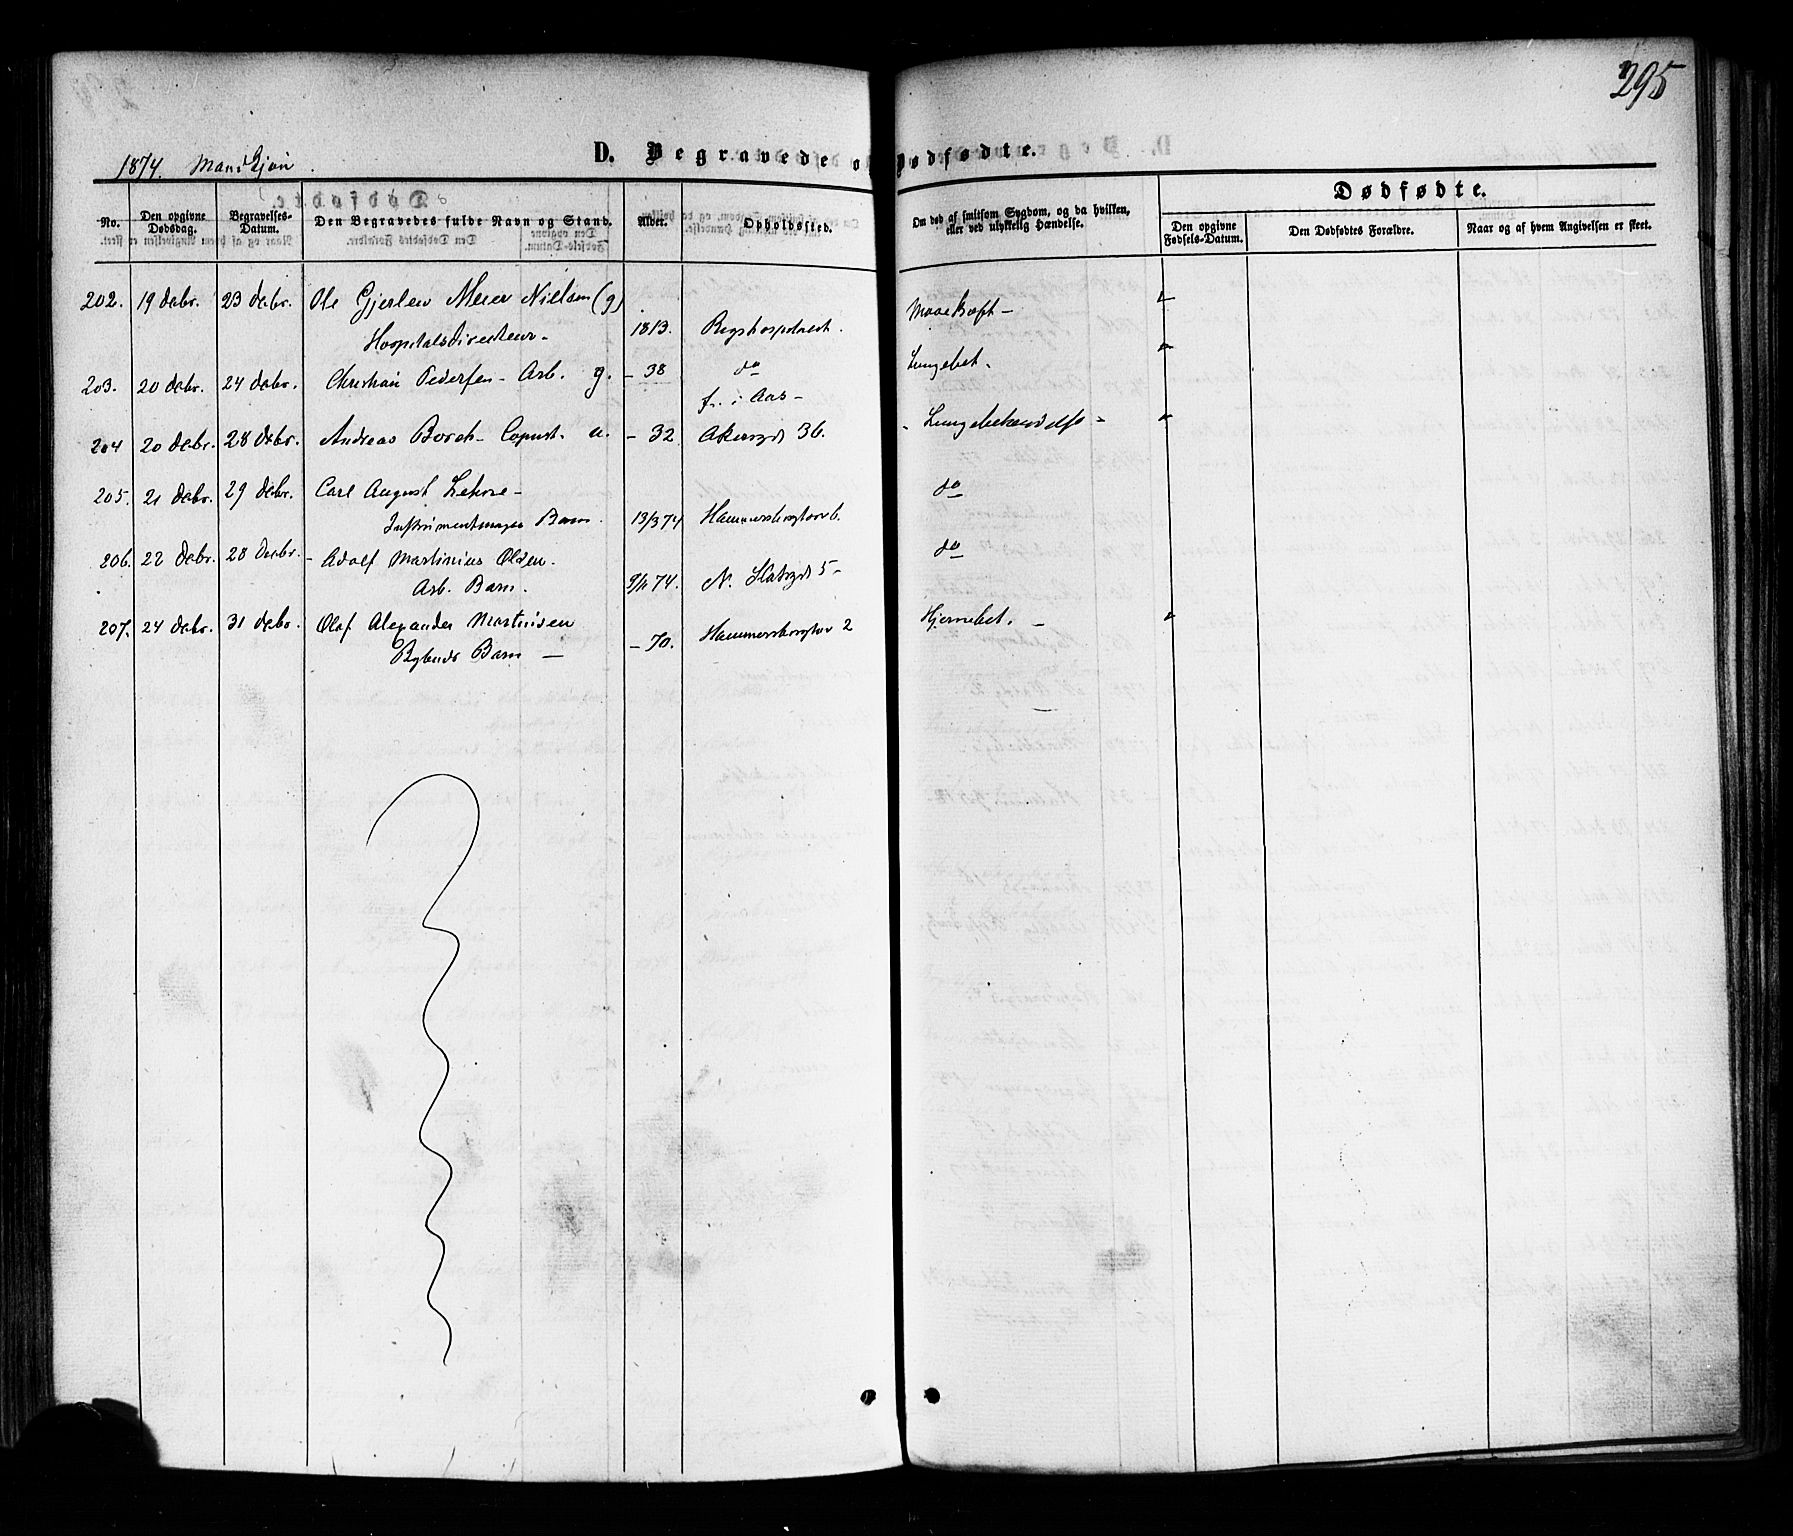 295
D. Begravede og Dødfødte.
1874. Mandkjøn.
Dødfødte.
No. Den opgivne Dødsdag. Begravelses-Datum. Den Begravedes fulde Navn og Stand. Alder. Opholdssted. Om død af smitsom Sygdom, og da hvilken, eller ved ulykkelig Hændelse. Den opgivne Fødsels-Datum. Den Dødfødtes Forældre. Naar og af hvem Angivelsen er skeet.
202. 19 decbr. 23 decbr. Ole Gjerlew Meier Nielsen (g)
Hospitalsdirecteur - 1813. Rigshospitalet.
203. 20 decbr. 24 decbr. Christian Pedersen - Arb. g. - 38 do Lungebet.
f. i Aas -
204 20 decbr. 28 decbr. Andreas Borch - Copist. u. - 32 Akersgd 36. Lungebetændelse -
205. 21 decbr. 29 decbr. Carl August do
Instrumentmager Barn. 13/3 74 Hammersborgtorv 6.
206. 22 decbr. 28 decbr. - Adolf Martinius Olsen. do
Arb. Barn. 9/11 74. N. Slotsgd 5 -
207. 24 decbr. 31 decbr. Olaf Alexander Martinsen Hjernebet. -
Barn - - 70. Hammersborgtorv 2